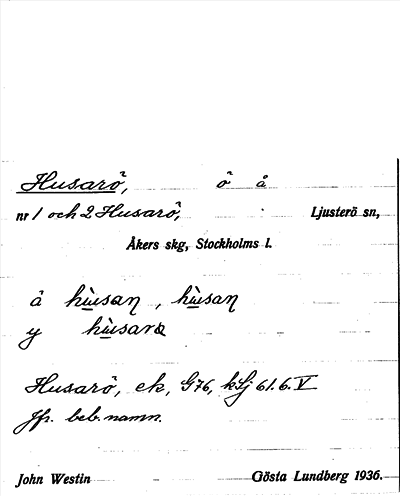 Husarö, ö å
nr 1 och 2 Husarö, Ljusterö sn,
Åkers skg, Stockholms l.
å hùsaƞ, hùsaƞ
y hùsarα
Husarö, ek, G76, kLj 61.6. V
Jfr. beb.namn.
John Westin Gösta Lundberg 1936.